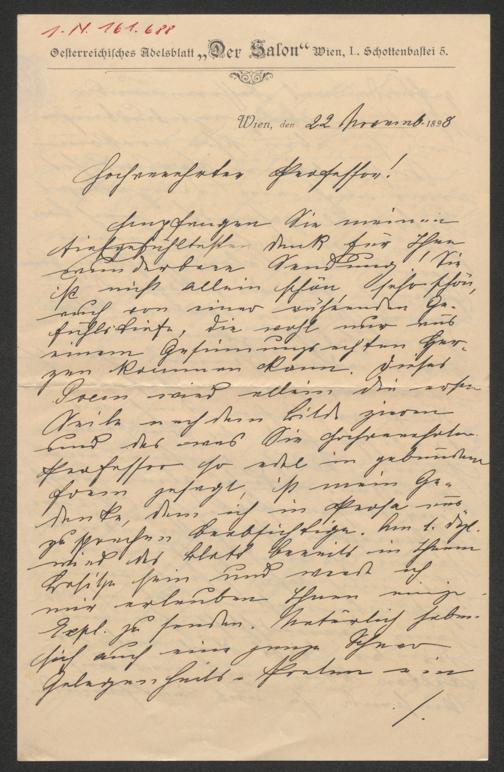 I. N. 161.688
Oesterreichisches Adelsblatt „Der Salon“ Wien, I. Schottenbastei 5.
Wien, den 22 Novemb. 1898
Hochverehrter Professor!
Empfangen Sie meinen
tiefgefühltesten Dank für Ihre
wunderbare Sendung! Sie
ist nicht allein schön, sehr schön,
auch von einer rührenden Ge-
fühlstiefe, die wohl nur aus
einem Gesinnungsechten Her-
zen kommen kann. Dieses
Poem wird allein die erste
Seite nach dem Bilde zieren
und das was Sie hochverehrter
Professor so edel in gebundener
Form gesagt, ist mein Ge-
danke, dem ich in Prosa aus
zu sprechen beabsichtige. Am 1. Dez.
wird das Blatt bereits in Ihrem
Besitze sein und werde ich
mir erlauben Ihnen einige
Expl. zu senden. Natürlich haben
sich auch eine ganze Schaar
Gelegenheits-Poeten ein
/.